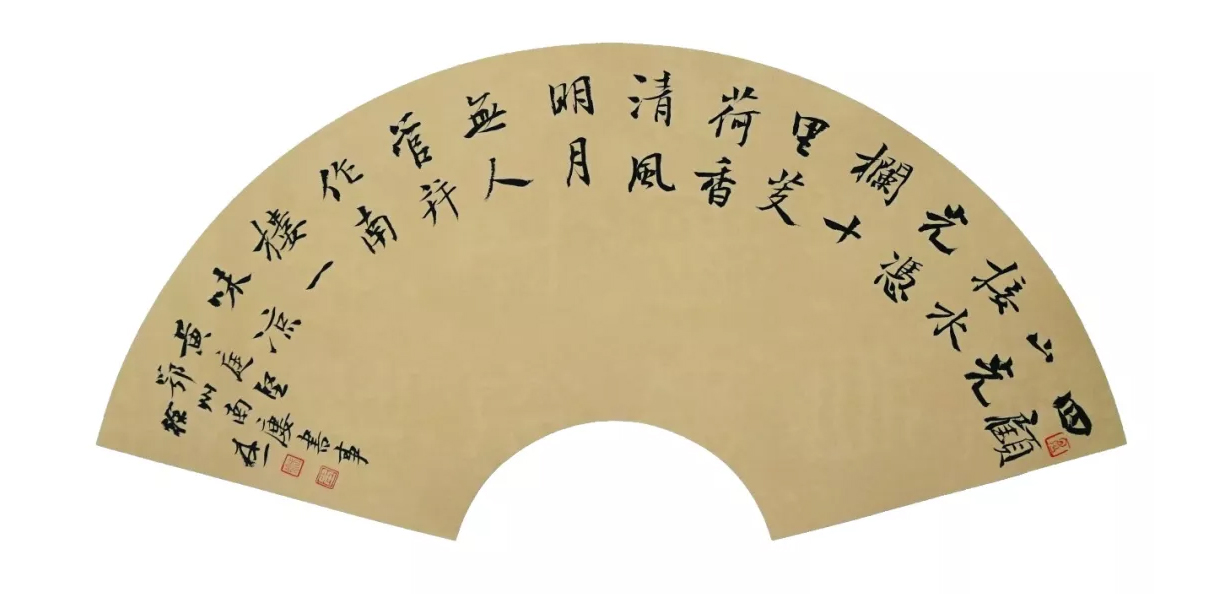 四顧
山光
接水
光憑
欄十
里芰
荷香
清風
明月
無人
管并
作南
樓一
味凉
黃庭堅
鄂州南樓書事
徐